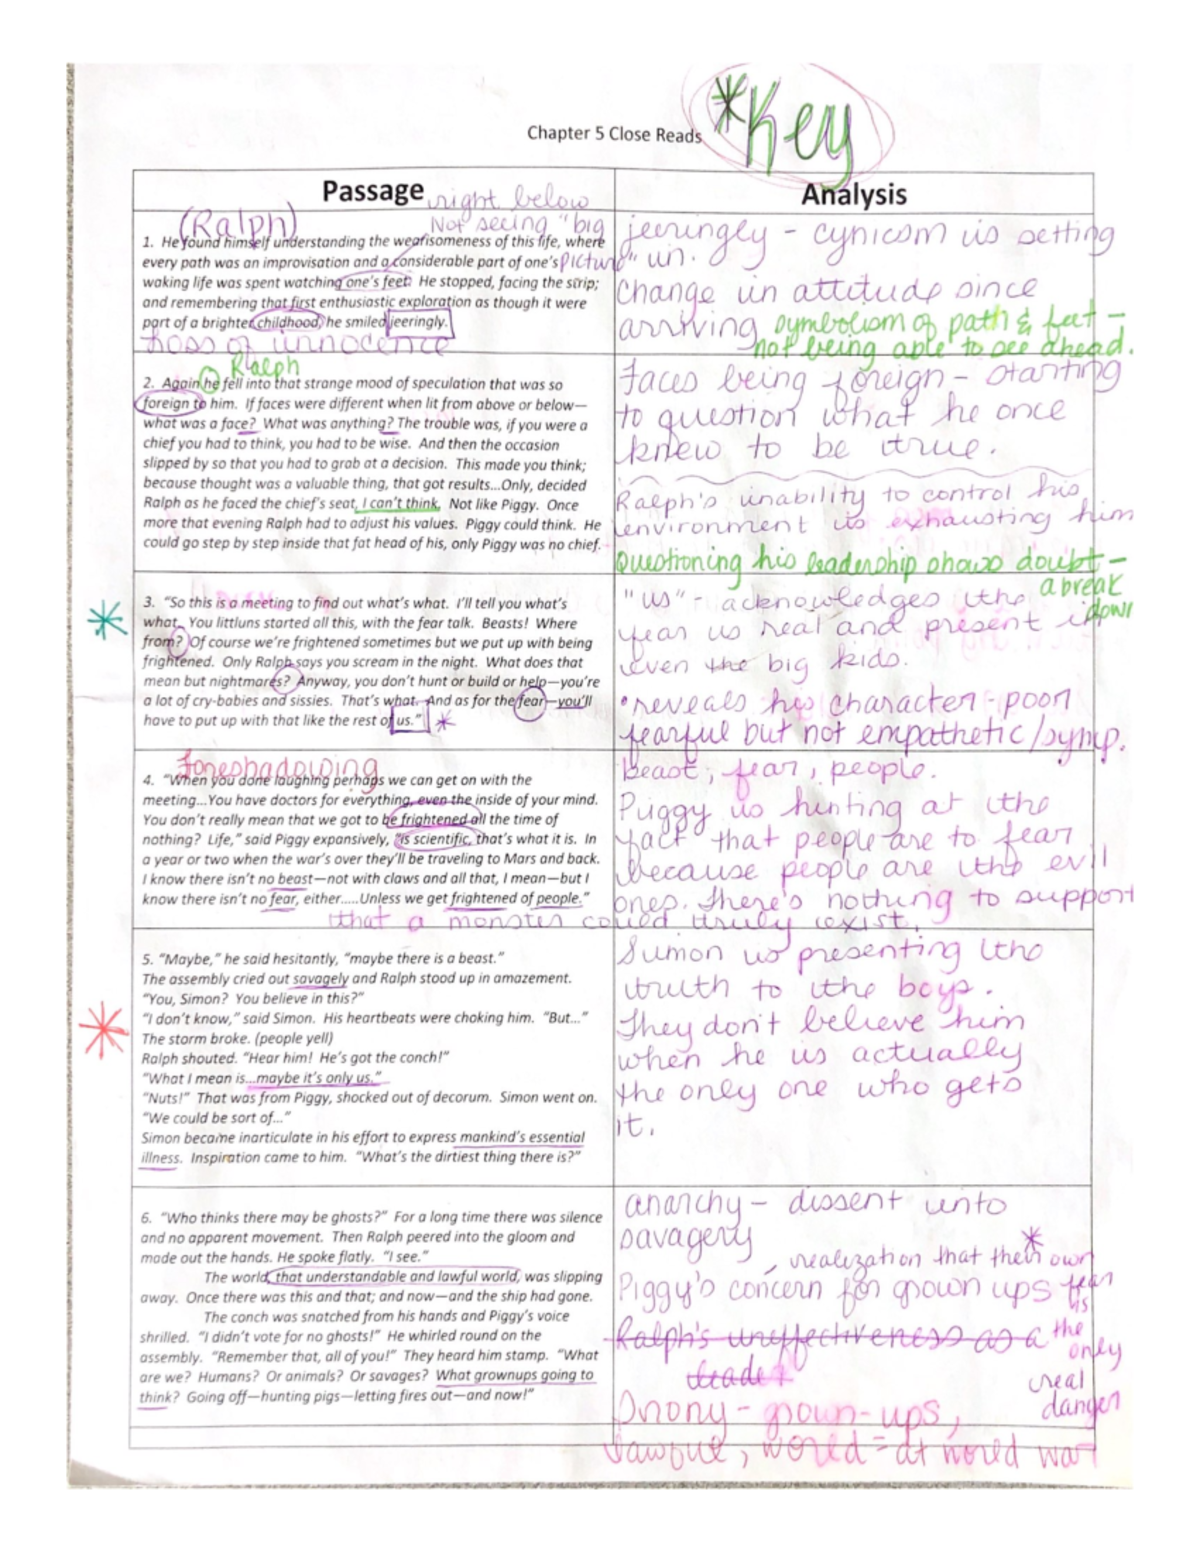 *Key
Chapter 5 Close Reads
Passage
Analysis
right below
(Ralph)
Not seeing "big
picture"
1. He found himself understanding the wearisomeness of this life, where
every path was an improvisation and a considerable part of one's
waking life was spent watching one's feet. He stopped, facing the strip;
and remembering that first enthusiastic exploration as though it were
part of a brighter childhood, he smiled jeeringly.
Loss of innocence
jeeringley - cynicism is setting
in.
Change in attitude since
arriving
symbolism of path & feet -
not being able to see ahead.
Ralph
2. Again he fell into that strange mood of speculation that was so
foreign to him. If faces were different when lit from above or below—
what was a face? What was anything? The trouble was, if you were a
chief you had to think, you had to be wise. And then the occasion
slipped by so that you had to grab at a decision. This made you think;
because thought was a valuable thing, that got results...Only, decided
Ralph as he faced the chief's seat, I can't think. Not like Piggy. Once
more that evening Ralph had to adjust his values. Piggy could think. He
could go step by step inside that fat head of his, only Piggy was no chief.
Faces being foreign - starting
to question what he once
knew to be true.
Ralph's inability to control his
environment is exhausting him
Questioning his leadership shows doubt -
a break
down
3. "So this is a meeting to find out what's what. I'll tell you what's
what. You littluns started all this, with the fear talk. Beasts! Where
from? Of course we're frightened sometimes but we put up with being
frightened. Only Ralph says you scream in the night. What does that
mean but nightmares? Anyway, you don't hunt or build or help—you're
a lot of cry-babies and sissies. That's what. And as for the fear—you'll
have to put up with that like the rest of us." *
"us" - acknowledges the
fear is real and present in
even the big kids.
• reveals his character - poor
fearful but not empathetic/symp.
Foreshadowing
4. "When you done laughing perhaps we can get on with the
meeting...You have doctors for everything, even the inside of your mind.
You don't really mean that we got to be frightened all the time of
nothing? Life," said Piggy expansively, "is scientific, that's what it is. In
a year or two when the war's over they'll be traveling to Mars and back.
I know there isn't no beast—not with claws and all that, I mean—but I
know there isn't no fear, either.....Unless we get frightened of people."
beast, fear, people.
Piggy is hinting at the
fact that people are to fear
because people are the evil
ones. There's nothing to support
that a monster could truly exist.
5. "Maybe," he said hesitantly, "maybe there is a beast."
The assembly cried out savagely and Ralph stood up in amazement.
"You, Simon? You believe in this?"
"I don't know," said Simon. His heartbeats were choking him. "But..."
The storm broke. (people yell)
Ralph shouted. "Hear him! He's got the conch!"
"What I mean is...maybe it's only us."
"Nuts!" That was from Piggy, shocked out of decorum. Simon went on.
"We could be sort of..."
Simon became inarticulate in his effort to express mankind's essential
illness. Inspiration came to him. "What's the dirtiest thing there is?"
Simon is presenting the
truth to the boys.
They don't believe him
when he is actually
the only one who gets
it.
6. "Who thinks there may be ghosts?" For a long time there was silence
and no apparent movement. Then Ralph peered into the gloom and
made out the hands. He spoke flatly. "I see."
The world, that understandable and lawful world, was slipping
away. Once there was this and that; and now—and the ship had gone.
The conch was snatched from his hands and Piggy's voice
shrilled. "I didn't vote for no ghosts!" He whirled round on the
assembly. "Remember that, all of you!" They heard him stamp. "What
are we? Humans? Or animals? Or savages? What grownups going to
think? Going off—hunting pigs—letting fires out—and now!"
anarchy - dissent into
savagery
*
realization that their own
fear
is
the
only
real
danger
Piggy's concern for grown ups
Ralph's uneffectiveness as a
leader
Irony - grown-ups,
lawful, world = at world war